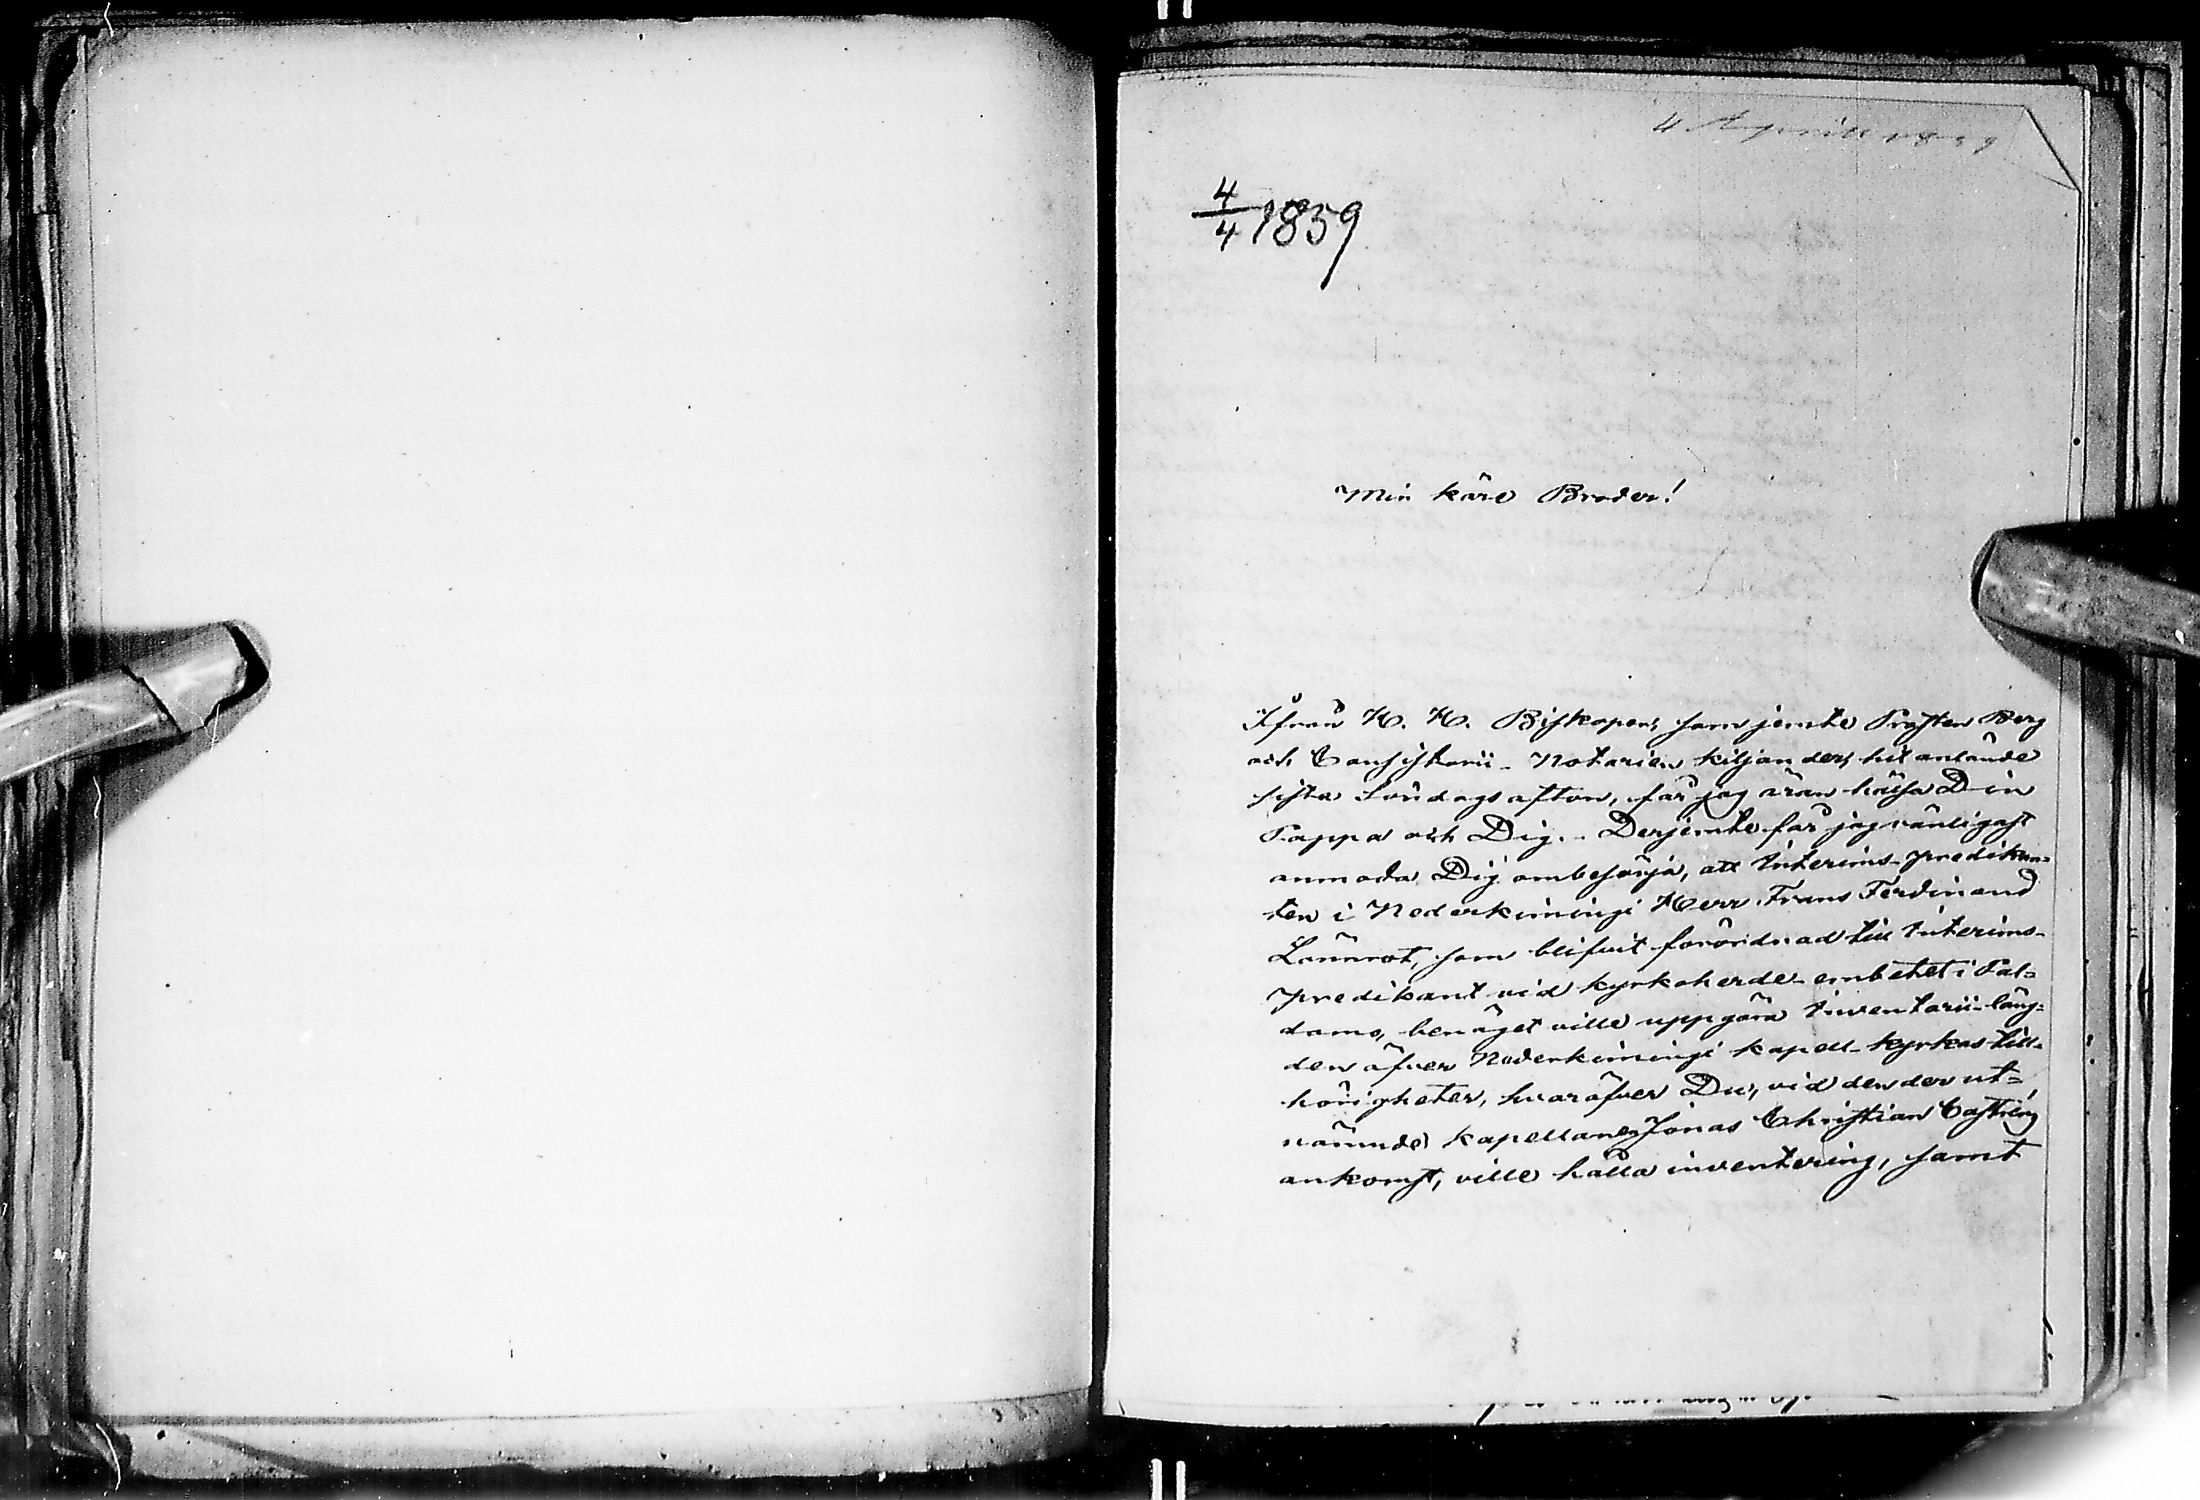 4 Aprill 1859
4/4 1859
Min käre Broder!
Ifrån H. H. Biskopen, som jemte Prosten Berg
och Consistorii-Notarien Kiljander, hit anlände
sista Söndags afton, får jag äran hälsa Din
Pappa och Dig. Derjemte får jag vänligast
anmoda Dig ombesörja, att Interims-predikan=
ten i Nederkimingi Herr Frans Ferdinand
Lännrot, som blifvit förordnad till Interims-
predikant vid kyrkoherde-embetet i Pal=
damo, benäget ville uppgöra Inventarii-läng=
den öfver Nederkimingi kapell-kyrkas till=
hörigheter, hvaröfver Du, vid den der ut=
nämnde kapellanen Jonas Christian Castréns
ankomst, ville hålla inventering, samt